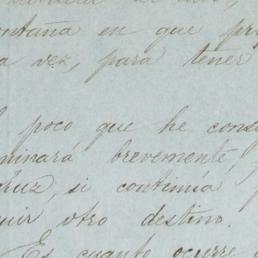 ontaña en que pr
a vez, para tener
poco que he cons
minará brevemente,
luz, si continúa
uir otro destino.
Es cuanto ocurre